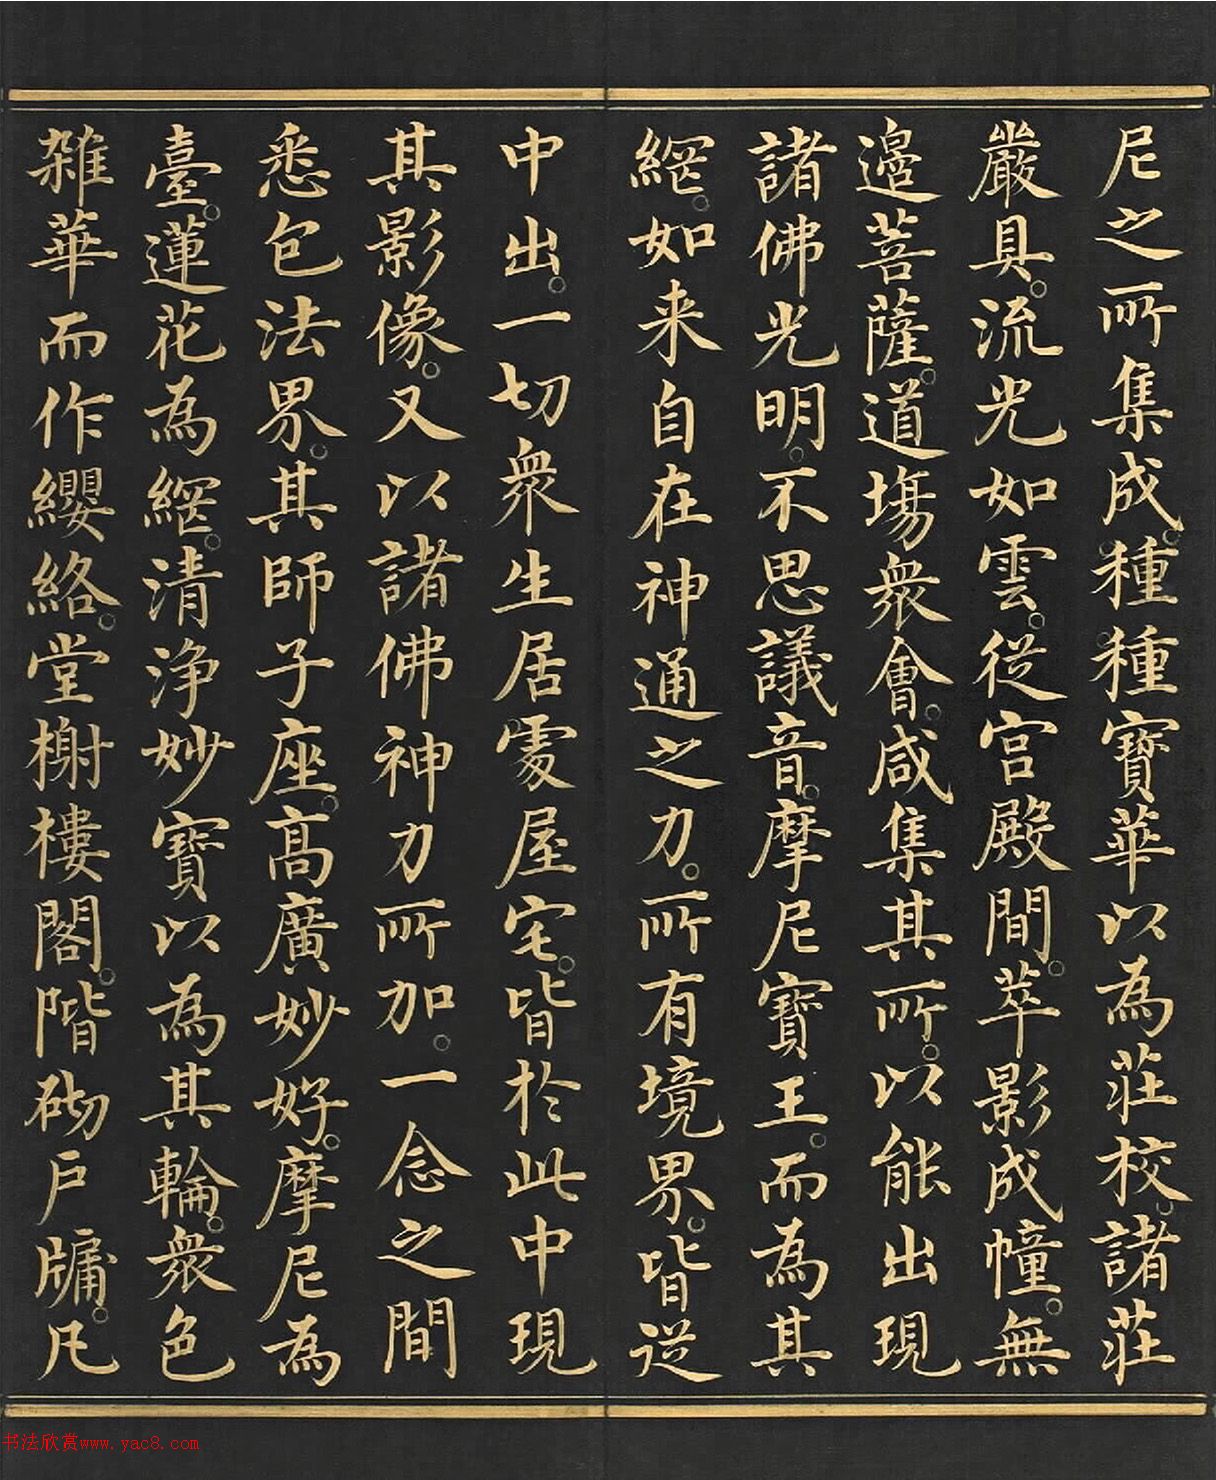 尼之所集成。種種寶華以為莊校。諸莊
嚴具。流光如雲。從宮殿間。萃影成幢。無
邊菩薩。道場眾會。咸集其所。以能出現
諸佛光明。不思議音。摩尼寶王。而為其
網。如来自在神通之力。所有境界。皆從
中出。一切眾生居處屋宅。皆於此中現
其影像。又以諸佛神力所加。一念之間
悉包法界。其師子座。高廣妙好。摩尼為
臺。蓮花為網。清淨妙寶以為其輪。眾色
雜華而作纓絡。堂榭樓閣。階砌戶牖。凡
书法欣赏www.yac8.com